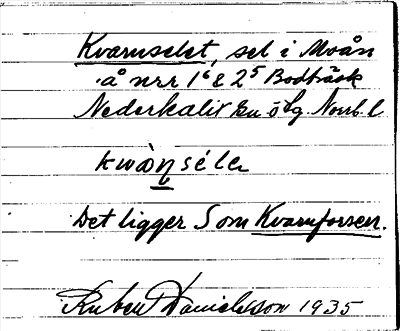 Kvarnselet, sel i Moån
å nrr 1⁶ & 2⁵ Bodträsk
Nederkalix Kn ö lg. Norrb. l
kwàɳ séle
Det ligger S om Kvarnforsen.
Ruben Danielsson 1935